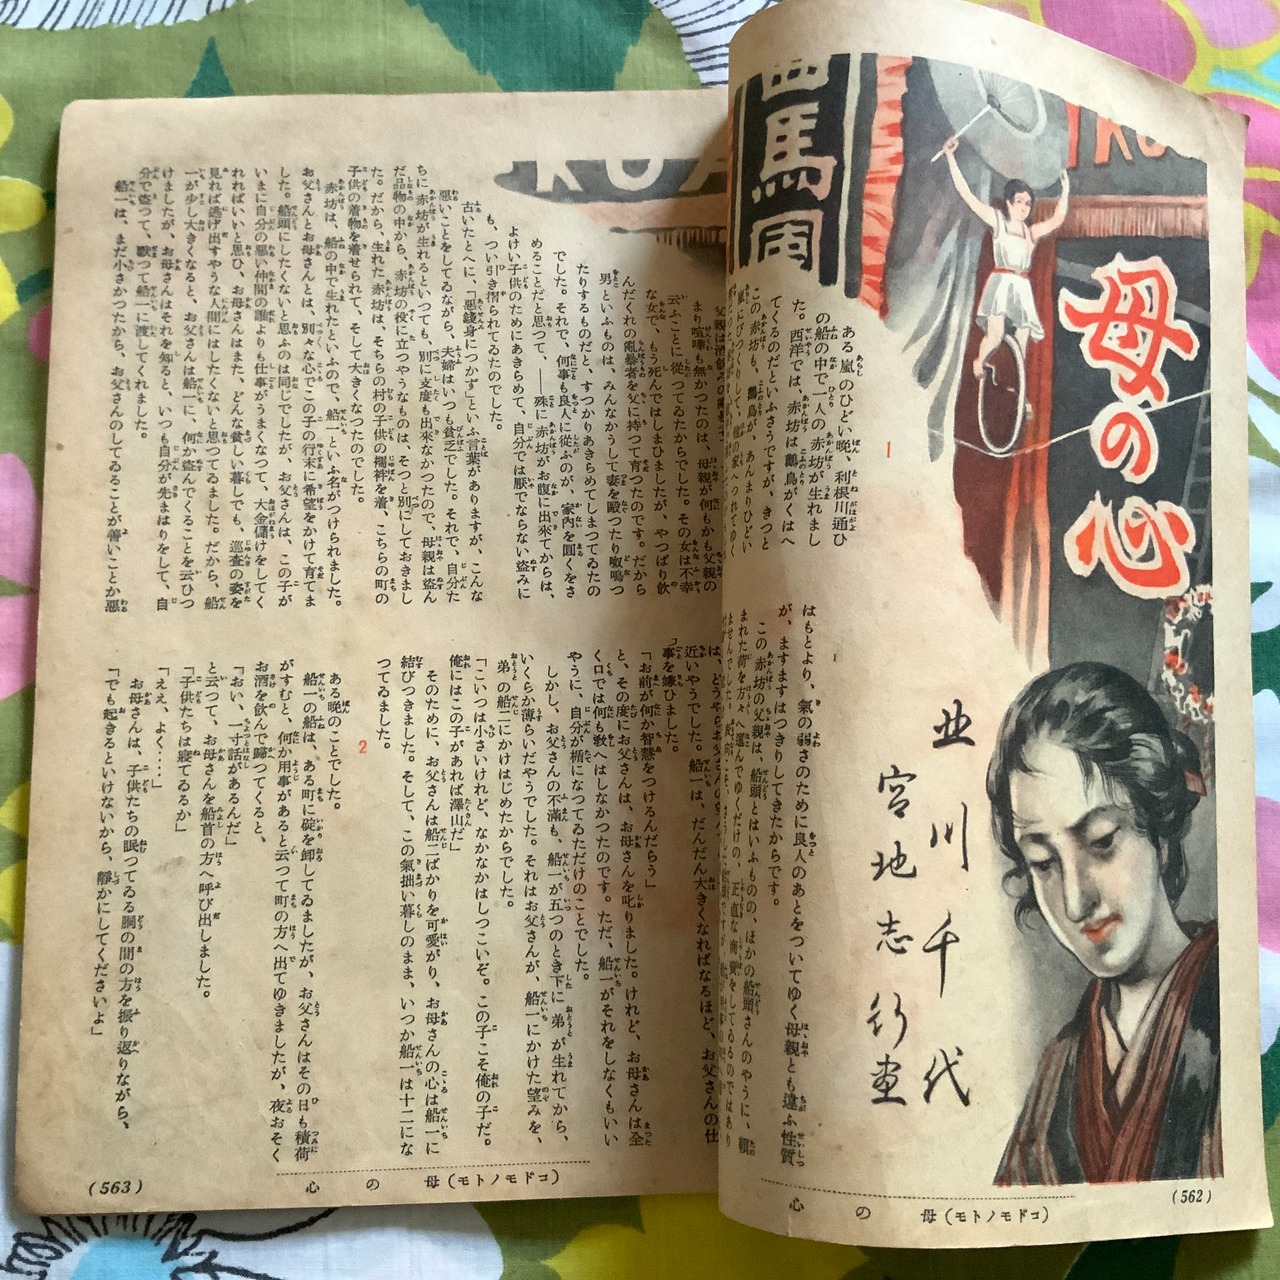 母の心
北川千代
宮地志行画
曲馬団
1
ある嵐のひどい晩、利根川通ひ
の船の中で一人の赤坊が生れまし
た。西洋では、赤坊は鸛鳥がくはへ
てくるのだといふさうですが、きつと
この赤坊も、鸛鳥が、あんまりひどい
嵐にびつくりして、他の家へつれてゆく
はもとより、氣の弱さのために良人のあとをついてゆく母親とも違ふ性質
が、ますますはつきりしてきたからです。
この赤坊の父親は、船頭とはいふものの、ほかの船頭さんのやうに、頼
まれた荷を方々へ運んでゆくだけの、正直な商賣をしてゐるのではあり
ませんでした。
(562)
心の母(モトノモドコ)
父親は酒飲みの
まり喧嘩も無かつたのは、母親が何もかも父親の
云ふことに從つてゐたからでした。その女は不幸
な女で、もう死んではしまひましたが、やつぱり飲
んだくれの亂暴者を父に持つて育つたのです。だから
男といふものは、みんなかうして妻を毆つたり呶鳴つ
たりするものだと、すつかりあきらめてしまつてゐたの
でした。それで、何事も良人に從ふのが、家内を圓くをさ
めることだと思つて、——殊に赤坊がお腹に出來てからは、
よけい子供のためにあきらめて、自分では厭でならない盗みに
も、つい引き摺られてゐたのでした。
古いたとへに、「惡錢身につかず」といふ言葉がありますが、こんな
惡いことをしてゐながら、夫婦はいつも貧乏でした。それで、自分た
ちに赤坊が生れるといつても、別に支度も出來なかつたので、母親は盗ん
だ品物の中から、赤坊の役に立つやうなものは、そつと別にしておきまし
た。だから、生れた赤坊は、そちらの村の子供の襦袢を着、こちらの町の
子供の着物を着せられて、そして大きくなつたのでした。
赤坊は、船の中で生れたといふので、船一といふ名がつけられました。
お父さんとお母さんとは、別々な心でこの子の行末に希望をかけて育てま
した。船頭にしたくないと思ふのは同じでしたが、お父さんは、この子が
いまに自分の惡い仲間の誰よりも仕事がうまくなつて、大金儲けをしてく
れればいいと思ひ、お母さんはまた、どんな貧しい暮しでも、巡査の姿を
見れば逃げ出すやうな人間にはしたくないと思つてゐました。だから、船
一が少し大きくなると、お父さんは船一に、何か盗んでくることを云ひつ
けましたが、お母さんはそれを知ると、いつも自分が先まはりをして、自
分で盗つて、默つて船一に渡してくれました。
船一は、まだ小さかつたから、お父さんのしてゐることが善いことか惡
近いやうでした。船一は、だんだん大きくなればなるほど、お父さんの仕
事を嫌ひました。
「お前が何か智慧をつけるんだらう」
と、その度にお父さんは、お母さんを叱りました。けれど、お母さんは全
く口では何も教へはしなかつたのです。ただ、船一がそれをしなくもいい
やうに、自分が楯になつてゐただけのことでした。
しかし、お父さんの不滿も、船一が五つのとき下に弟が生れてから、
いくらか薄らいだやうでした。それはお父さんが、船一にかけた望みを、
弟の船二にかけはじめたからでした。
「こいつは小さいけれど、なかなかはしつこいぞ。この子こそ俺の子だ。
俺にはこの子があれば澤山だ」
そのために、お父さんは船二ばかりを可愛がり、お母さんの心は船一に
結びつきました。そして、この氣拙い暮しのまま、いつか船一は十二にな
つてゐました。
2
ある晩のことでした。
船一の船は、ある町に碇を卸してゐましたが、お父さんはその日も積荷
がすむと、何か用事があると云つて町の方へ出てゆきましたが、夜おそく
お酒を飲んで歸つてくると、
「おい、一寸話があるんだ」
と云つて、お母さんを船首の方へ呼び出しました。
「子供たちは寢てゐるか」
「ええ、よく‥‥」
お母さんは、子供たちの眠つてゐる胴の間の方を振り返りながら、
「でも起きるといけないから、靜かにしてくださいよ」
(563)
心の母(モトノモドコ)